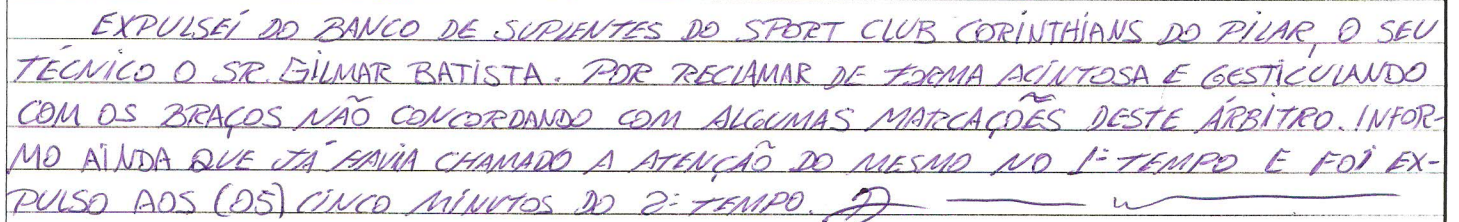 EXPULSEI DO BANCO DE SUPLENTES DO SPORT CLUB CORINTHIANS DO PILAR, O SEU
TÉCNICO O SR. GILMAR BATISTA. POR RECLAMAR DE FORMA ACINTOSA E GESTICULANDO
COM OS BRAÇOS NÃO CONCORDANDO COM ALGUMAS MARCAÇÕES DESTE ÁRBITRO. INFOR-
MO AINDA QUE JÁ HAVIA CHAMADO A ATENÇÃO DO MESMO NO 1º TEMPO E FOI EX-
PULSO AOS (05) CINCO MINUTOS DO 2º TEMPO.